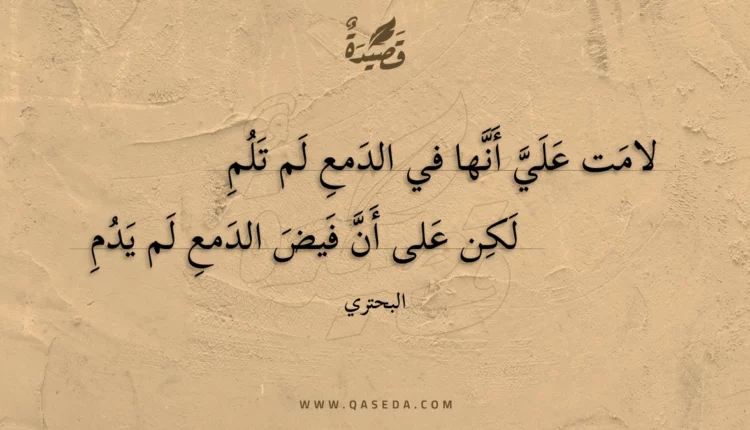 قَصِيدَةٌ
لامَت عَلَيَّ أَنَّها في الدَمعِ لَم تَلُمِ
لَكِن عَلى أَنَّ فَيضَ الدَمعِ لَم يَدُمِ
البحتري
WWW.QASEDA.COM